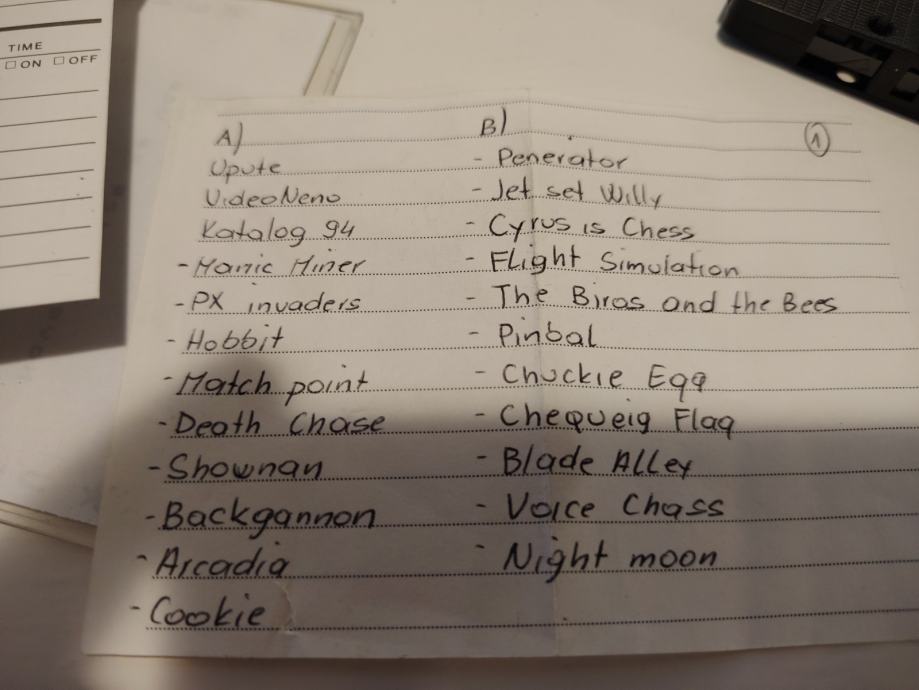 TIME
ON OFF
A)
Upute
VideoNeno
Katalog 94
- Manic Miner
- PX invaders
- Hobbit
- Match point
- Death Chase
- Shownan
- Backgannon
- Arcadia
- Cookie
B)
- Penerator
- Jet set Willy
- Cyrus is Chess
- Flight Simulation
- The Biros and the Bees
- Pinbal
- Chuckie Egg
- Chequeig Flag
- Blade Alley
- Voice Chass
- Night moon
1